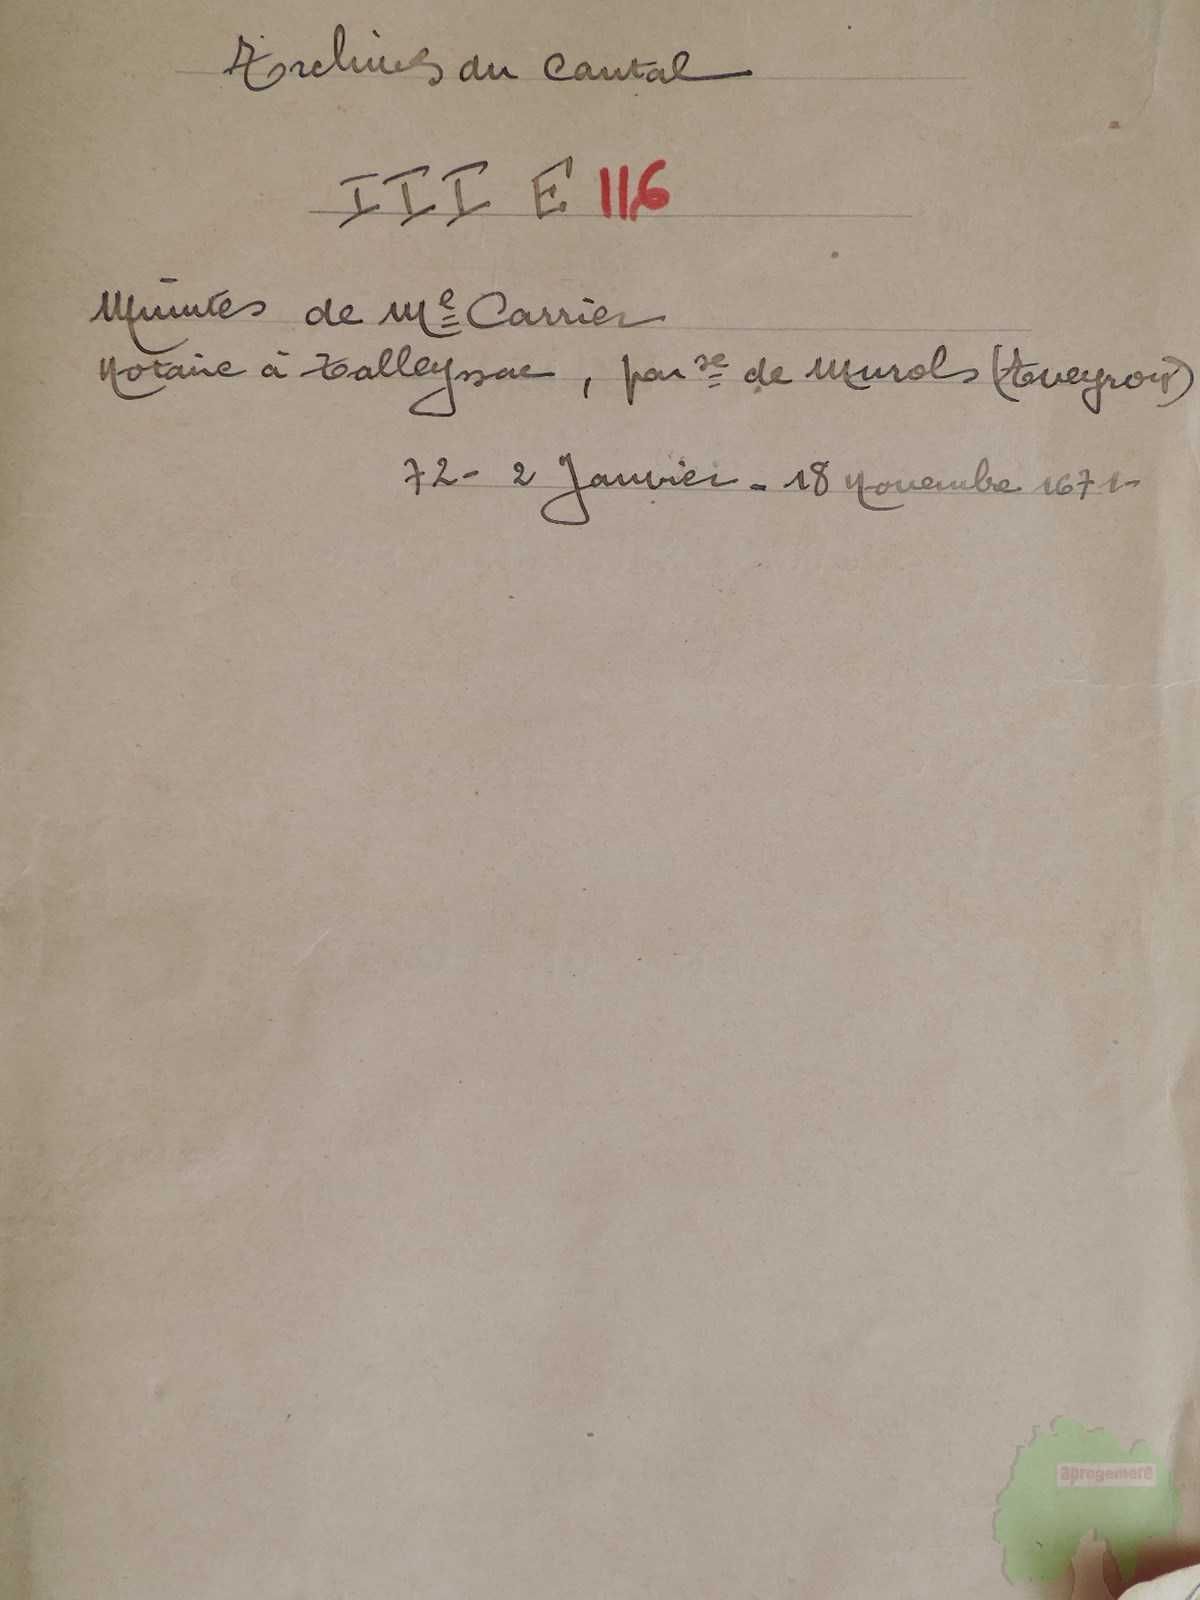 Archives du Cantal
III E 116
Minutes de Me Carrier
Notaire à Talleyssac, parsse de Murols (Aveyron)
72 - 2 Janvier - 18 Novembre 1671 -
aprogemere